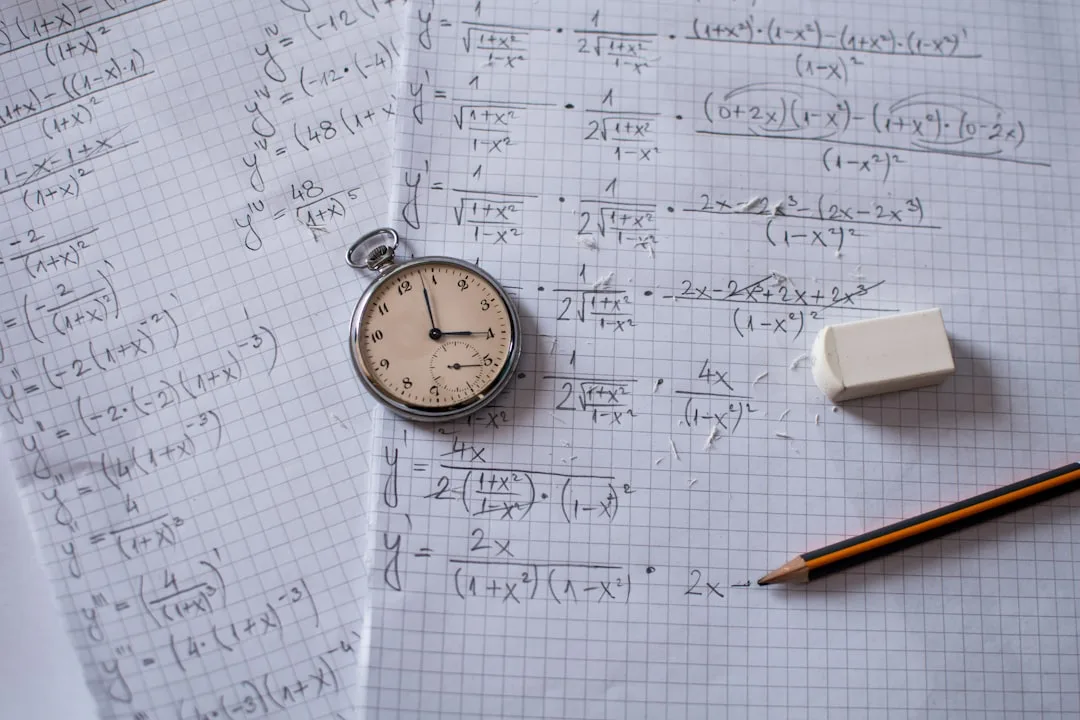 (1+x) - (
(1+x)²
1+x) - ((1-x)·1)
(1+x)²
1-x-1+x
(1+x)²
-2
(1+x)²
= (-2/(1+x)²)'
y'' = (-2(1+x)⁻²)'
y'' = (-2·(-2)(1+x)⁻³)
y'' = (4(1+x)⁻³)
y'' = 4/(1+x)³
y''' = (4/(1+x)³)'
y''' = (4·(1+x)⁻³)
·(-3)(1+x)⁻⁴
yᴵⱽ = (-12(1+
yᴵⱽ = (-12·(-4)(
yᴵⱽ = (48(1+x
yᴵⱽ = 48/(1+x)⁵
y' = 1/√((1+x²)/(1-x²)) · 1/(2√((1+x²)/(1-x²))) · ((1+x²)'·(1-x²)-(1+x²)·(1-x²)')/(1-x)²
y' = 1/√((1+x²)/(1-x²)) · 1/(2√((1+x²)/(1-x²))) · ((0+2x)(1-x²)-(1+x²)·(0-2x))/(1-x²)²
y' = 1/√((1+x²)/(1-x²)) · 1/(2√((1+x²)/(1-x²))) · (2x-2x³-(2x-2x³))/(1-x²)²
· 1/(2√((1+x²)/(1-x²))) · (2x-2x³+2x+2x³)/(1-x²)²
1-x² · 1/(2√((1+x²)/(1-x²))) · 4x/(1-x²)²
y' = 4x/(2·((1+x²)/(1-x²))·(1-x²)²)
y' = 2x/((1+x²)(1-x²)) · 2x
12 1 2 3 4 5 8 9 10 11